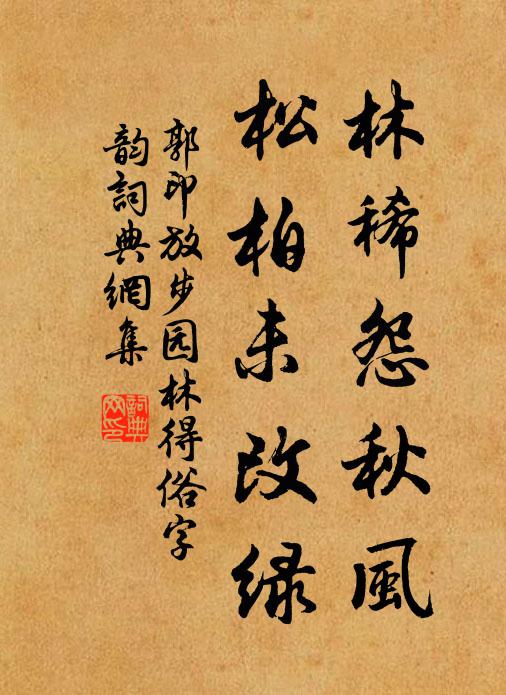 林稀怨秋風
松柏未改綠
郭印放步园林得俗字
韵詞典網集
詞典網印